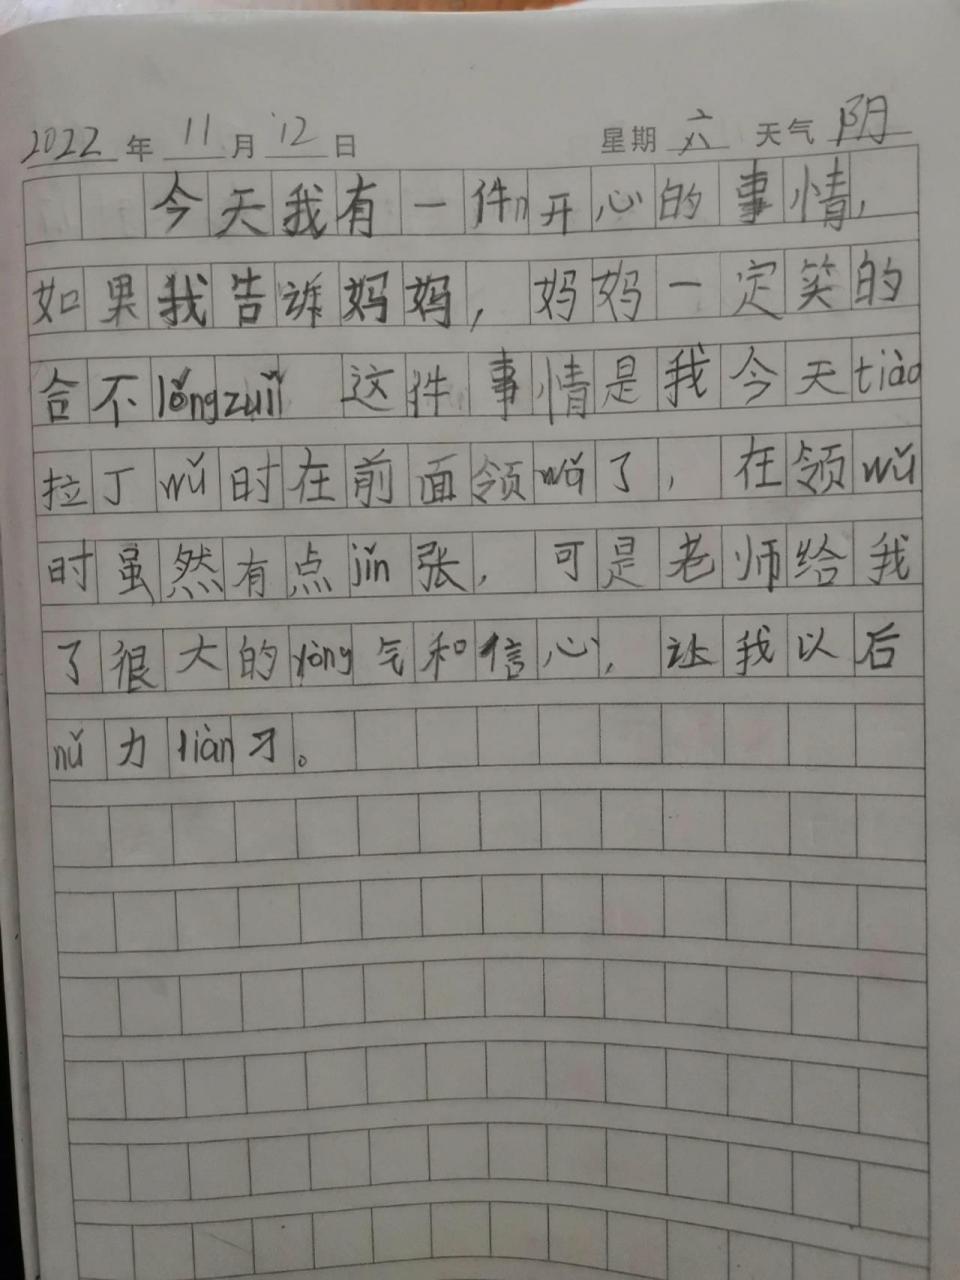 2022年 11月 12日 星期六 天气 阴
今天我有一件开心的事情，
如果我告诉妈妈，妈妈一定笑的
合不lǒngzuǐ 这件事情是我今天tiào
拉丁wǔ时在前面领wǔ了，在领wǔ
时虽然有点jǐn张，可是老师给我
了很大的yǒng气和信心，让我以后
nǔ力liàn习。